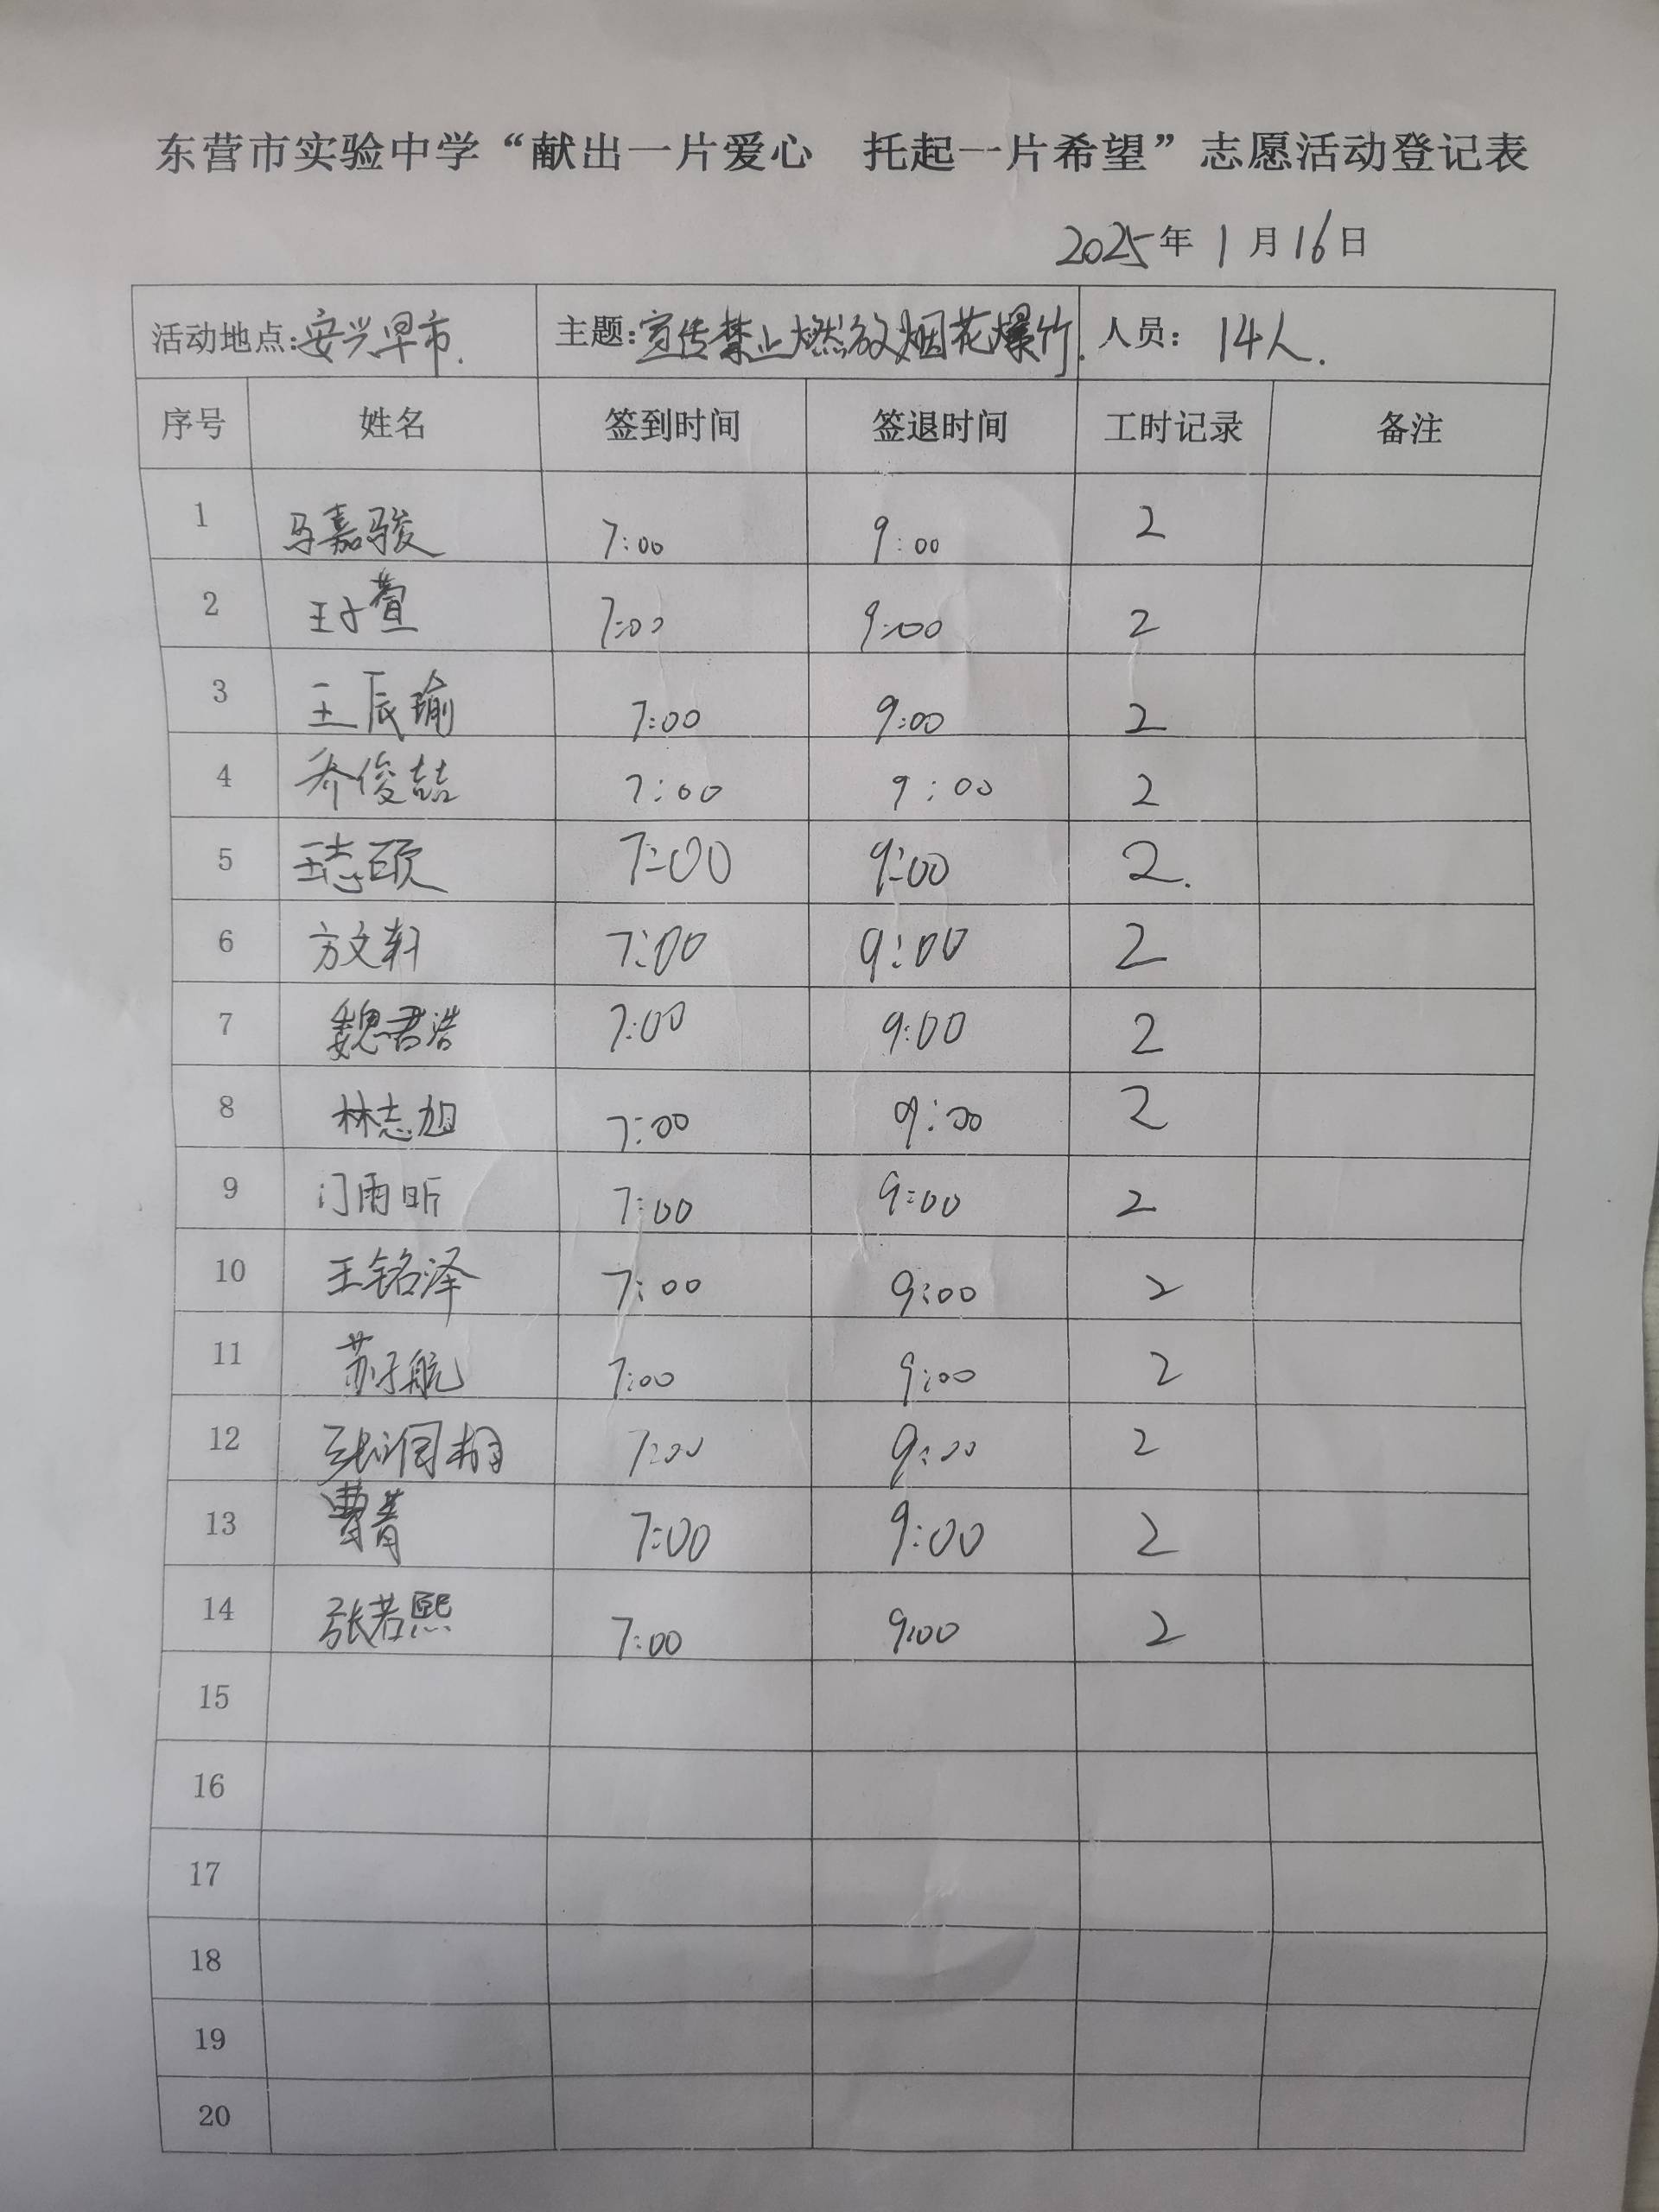 东营市实验中学“献出一片爱心 托起一片希望”志愿活动登记表
2025年1月16日
活动地点:安兴早市. 主题:宣传禁止燃放烟花爆竹. 人员: 14人.
序号 姓名 签到时间 签退时间 工时记录 备注
1 马嘉骏 7:00 9:00 2
2 王子萱 7:00 9:00 2
3 王辰瑜 7:00 9:00 2
4 乔俊喆 7:00 9:00 2
5 王志硕 7:00 9:00 2.
6 方文轩 7:00 9:00 2
7 魏君浩 7:00 9:00 2
8 林志旭 7:00 9:00 2
9 门雨昕 7:00 9:00 2
10 王铭泽 7:00 9:00 2
11 苏子航 7:00 9:00 2
12 7:00 9:00 2
13 曹菁 7:00 9:00 2
14 张若熙 7:00 9:00 2
15
16
17
18
19
20